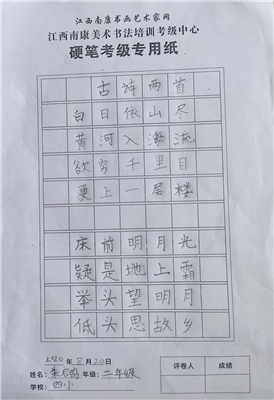 江西南康书画艺术家网
江西南康美术书法培训考级中心
硬笔考级专用纸
古诗两首
白日依山尽
黄河入海流
欲穷千里目
更上一层楼
床前明月光
疑是地上霜
举头望明月
低头思故乡
2020年8月20日
姓名: 朱 年级: 二年级
学校: 四小
评卷人 成绩